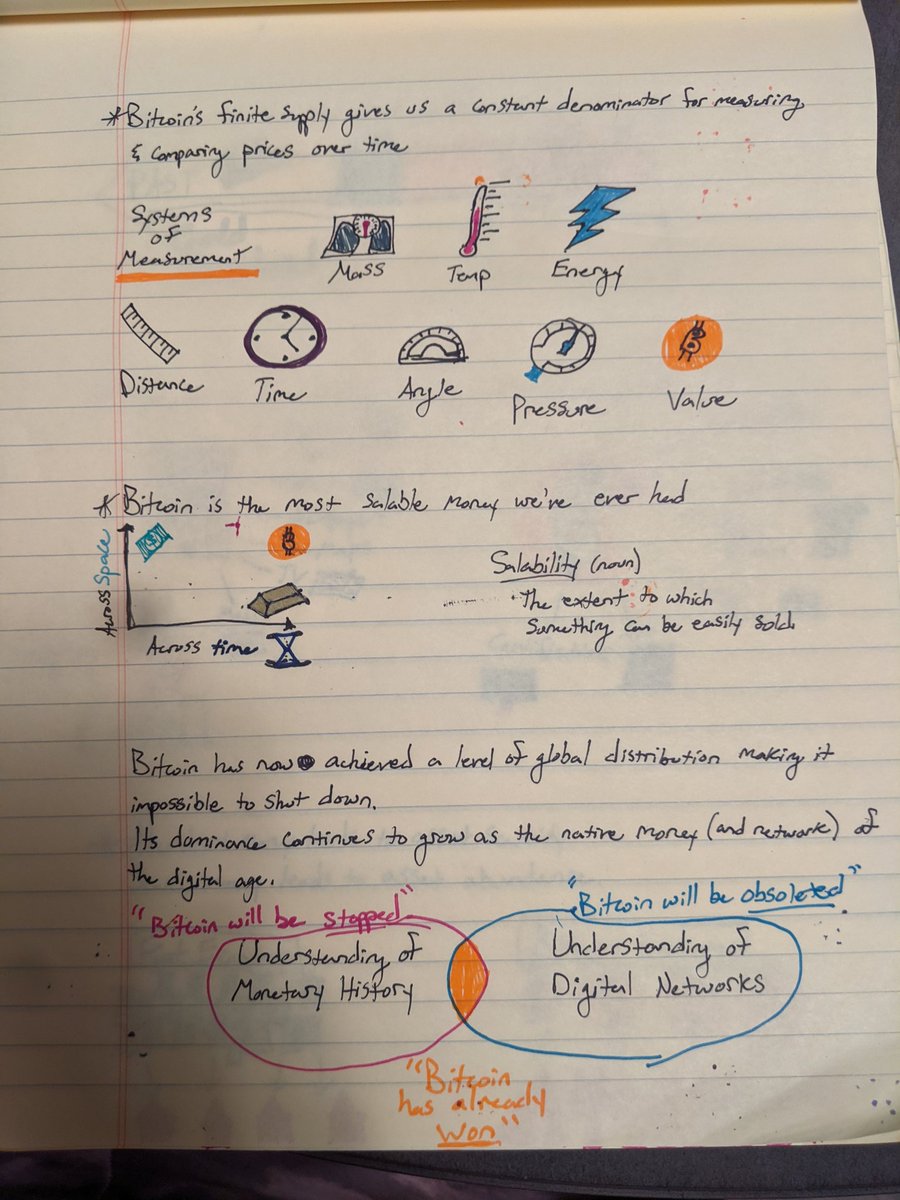 * Bitcoin's finite supply gives us a constant denominator for measuring
& comparing prices over time
Systems
of
Measurement
Mass
Temp
Energy
Distance
Time
Angle
Pressure
Value
* Bitcoin is the most salable money we've ever had
Across Space
Across time
Salability (noun)
· The extent to which
something can be easily sold.
Bitcoin has now achieved a level of global distribution making it
impossible to shut down.
Its dominance continues to grow as the native money (and network) of
the digital age.
"Bitcoin will be stopped"
"Bitcoin will be obsoleted"
Understanding of
Monetary History
Understanding of
Digital Networks
"Bitcoin
has already
won"